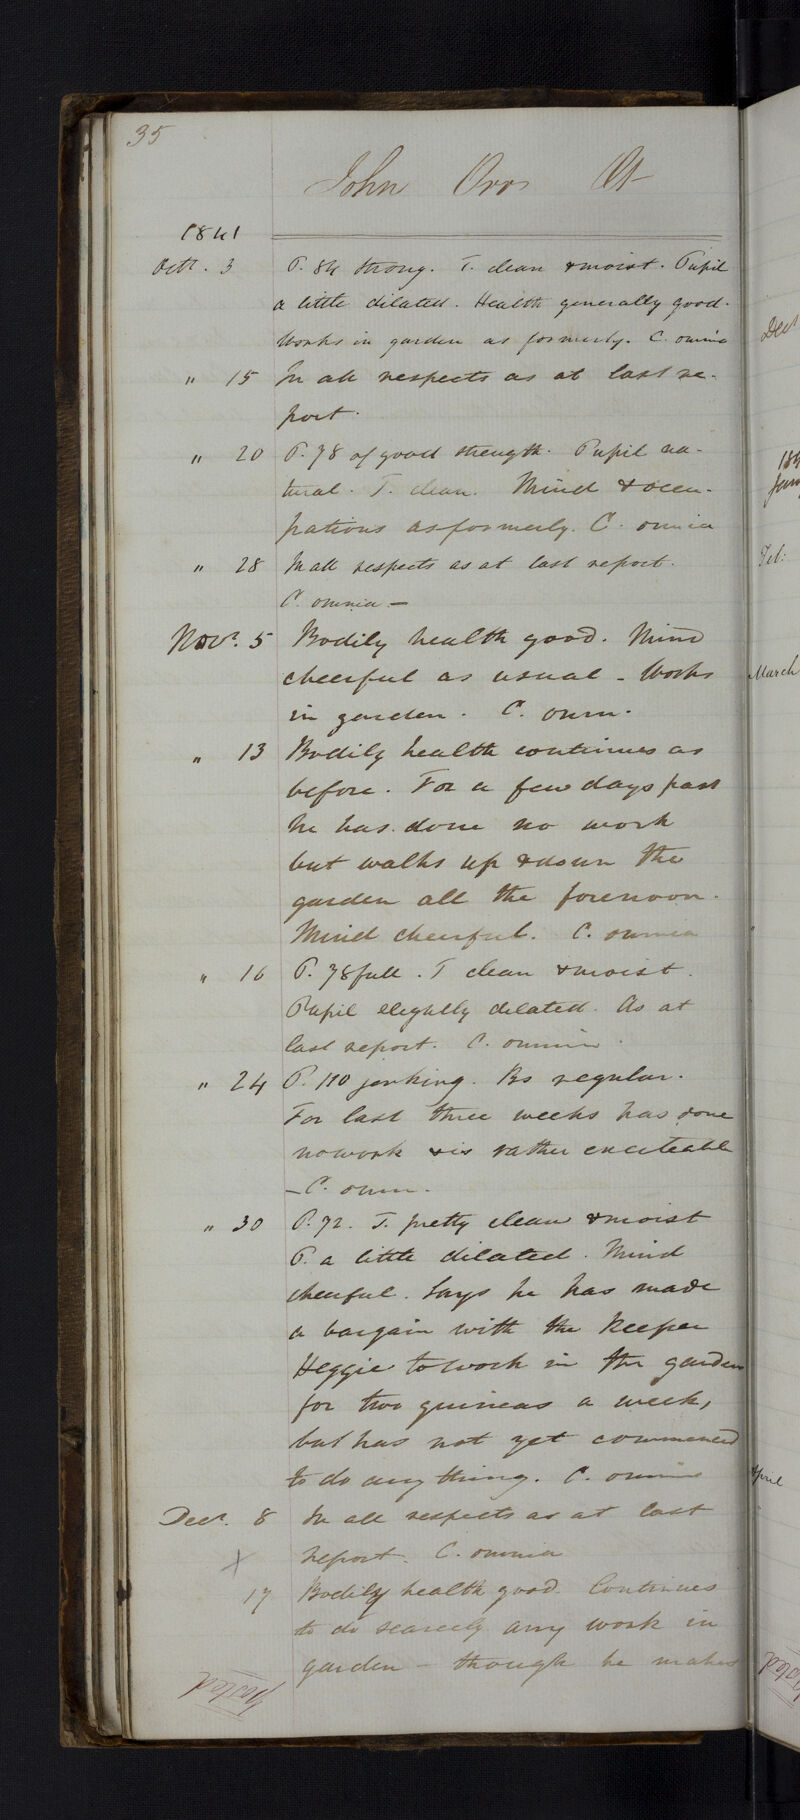 35
John Orr
1841
Octr. 3 P. 84 strong. T. clean & moist. Pupil
a little dilated. Health generally good.
Works in garden as formerly. C. omnia
" 15 In all respects as at last re-
port.
" 20 P. 78 of good strength. Pupil na-
tural. T. clean. Mind & occu-
pations as formerly. C. omnia
" 28 In all respects as at last report.
C. omnia —
Novr. 5 Bodily health good. Mind
cheerful as usual - Works
in garden. C. omn.
" 13 Bodily health continues as
before. For a few days past
he has done no work
but walks up & down the
garden all the forenoon.
Mind cheerful. C. omnia
" 16 P. 78 full. T clean & moist.
Pupil slightly dilated. As at
last report. C. omnia.
" 24 P. 110 jerking. Bs regular.
For last three weeks has done
no work & is rather exciteable
— C. omn.
" 30 P. 72. T. pretty clean & moist
P. a little dilated. Mind
cheerful. Says he has made
a bargain with the keeper
Heggie to work in the garden
for two guineas a week,
but has not yet commenced
to do any thing. C. omnia
Decr. 8 In all respects as at last
report. C. omnia
17 Bodily health good. Continues
to do scarcely any work in
garden — though he makes
Posted
Feb:
March
April